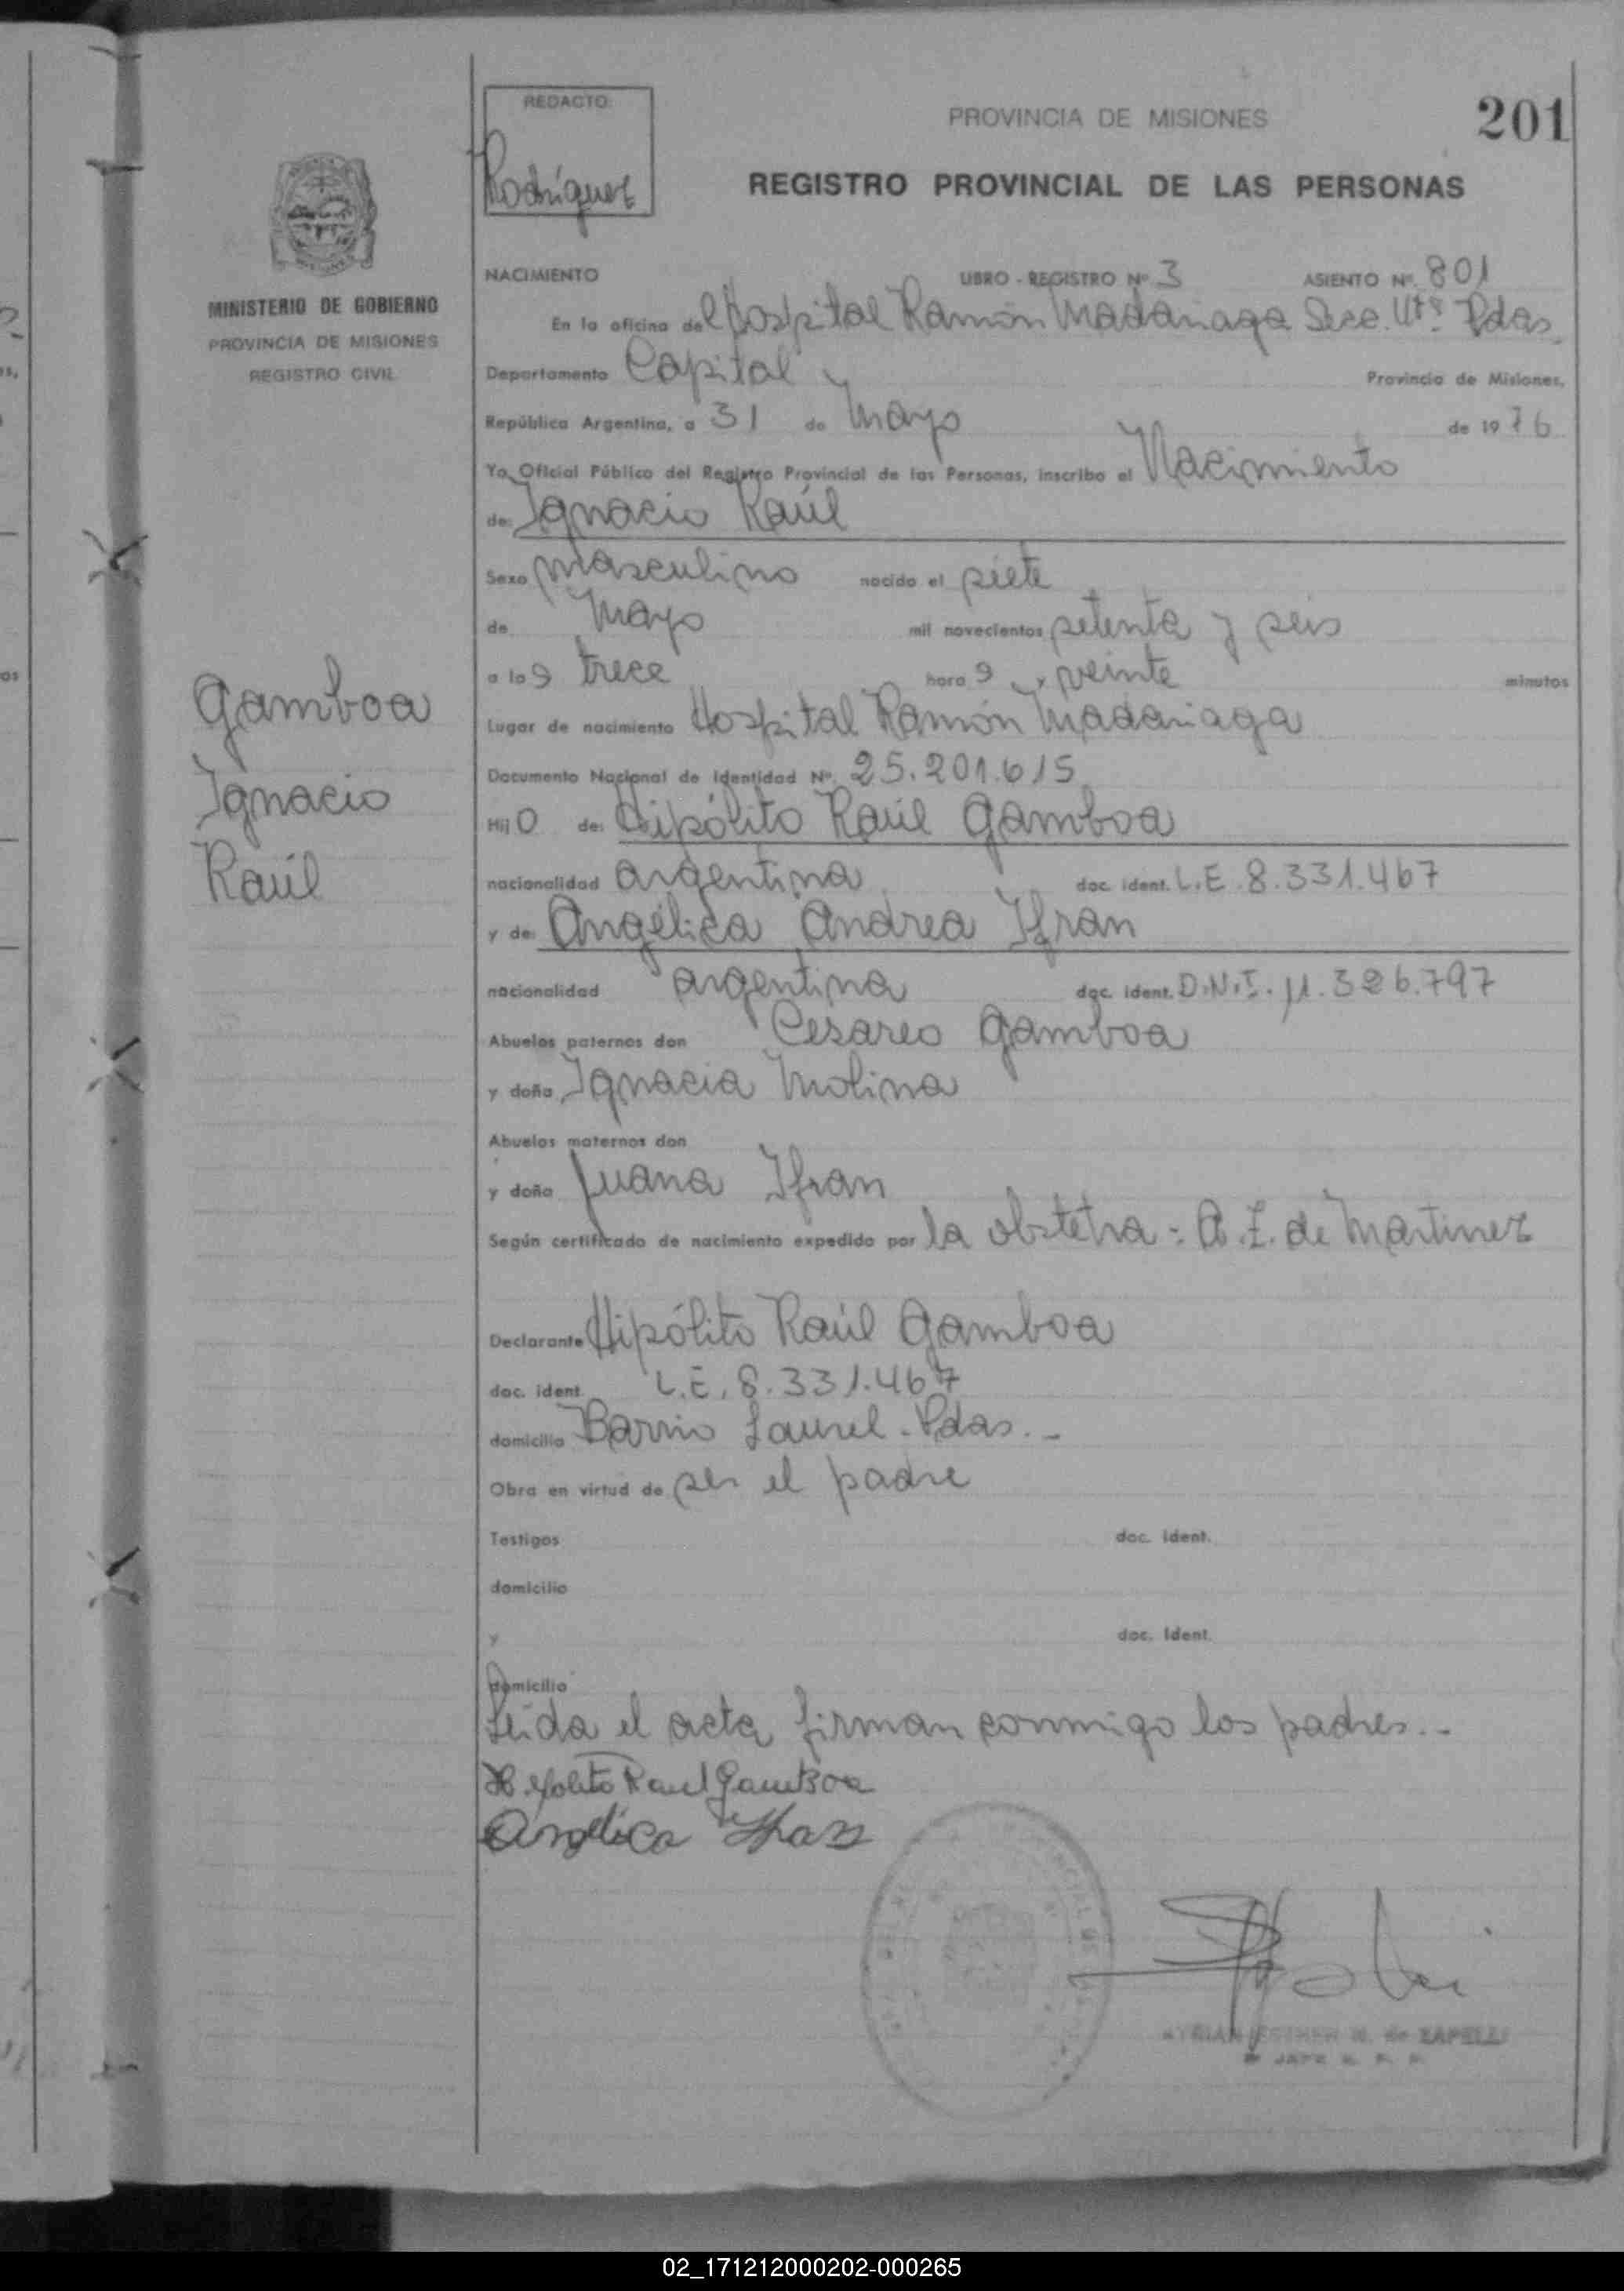 REDACTO:
Rodríguez
PROVINCIA DE MISIONES
201
REGISTRO PROVINCIAL DE LAS PERSONAS
MINISTERIO DE GOBIERNO
PROVINCIA DE MISIONES
REGISTRO CIVIL
Gamboa
Ignacio
Raúl
NACIMIENTO LIBRO - REGISTRO Nº 3 ASIENTO Nº 801
En la oficina del Hospital Ramón Madariaga Secc. Pdas.
Departamento Capital Provincia de Misiones,
República Argentina, a 31 de Mayo de 1976
Yo, Oficial Público del Registro Provincial de las Personas, inscribo el Nacimiento
de: Ignacio Raúl
Sexo masculino nacido el siete
de Mayo mil novecientos setenta y seis
a las trece horas y veinte minutos
Lugar de nacimiento Hospital Ramón Madariaga
Documento Nacional de Identidad Nº 25.201.615
Hijo de: Hipólito Raúl Gamboa
nacionalidad argentina doc. ident. L.E. 8.331.467
y de: Angélica Andrea Ifran
nacionalidad argentina doc. ident. D.N.I. 11.326.797
Abuelos paternos don Cesareo Gamboa
y doña Ignacia Molina
Abuelos maternos don
y doña Juana Ifran
Según certificado de nacimiento expedido por la obstetra: A. de Martinez
Declarante Hipólito Raúl Gamboa
doc. ident. L.E. 8.331.467
domicilio Barrio Laurel - Pdas.-
Obra en virtud de ser el padre
Testigos doc. ident.
domicilio
y doc. ident.
domicilio
Leida el acta firman conmigo los padres.-
Hipolito Raul Gamboa
Angelica Ifran
ESTHER de ZAPELLI
02_171212000202-000265